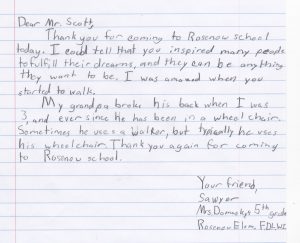 Dear Mr. Scott,
Thank you for coming to Rosenow school
today. I could tell that you inspired many people
to fulfill their dreams, and they can be anything
they want to be. I was amazed when you
started to walk.
My grandpa broke his back when I was
3, and ever since he has been in a wheel chair.
Sometimes he uses a walker, but typically he uses
his wheelchair. Thank you again for coming
to Rosenow school.
Your friend,
Sawyer
Mrs. 5th grade
Rosenow Elem. FDLWI